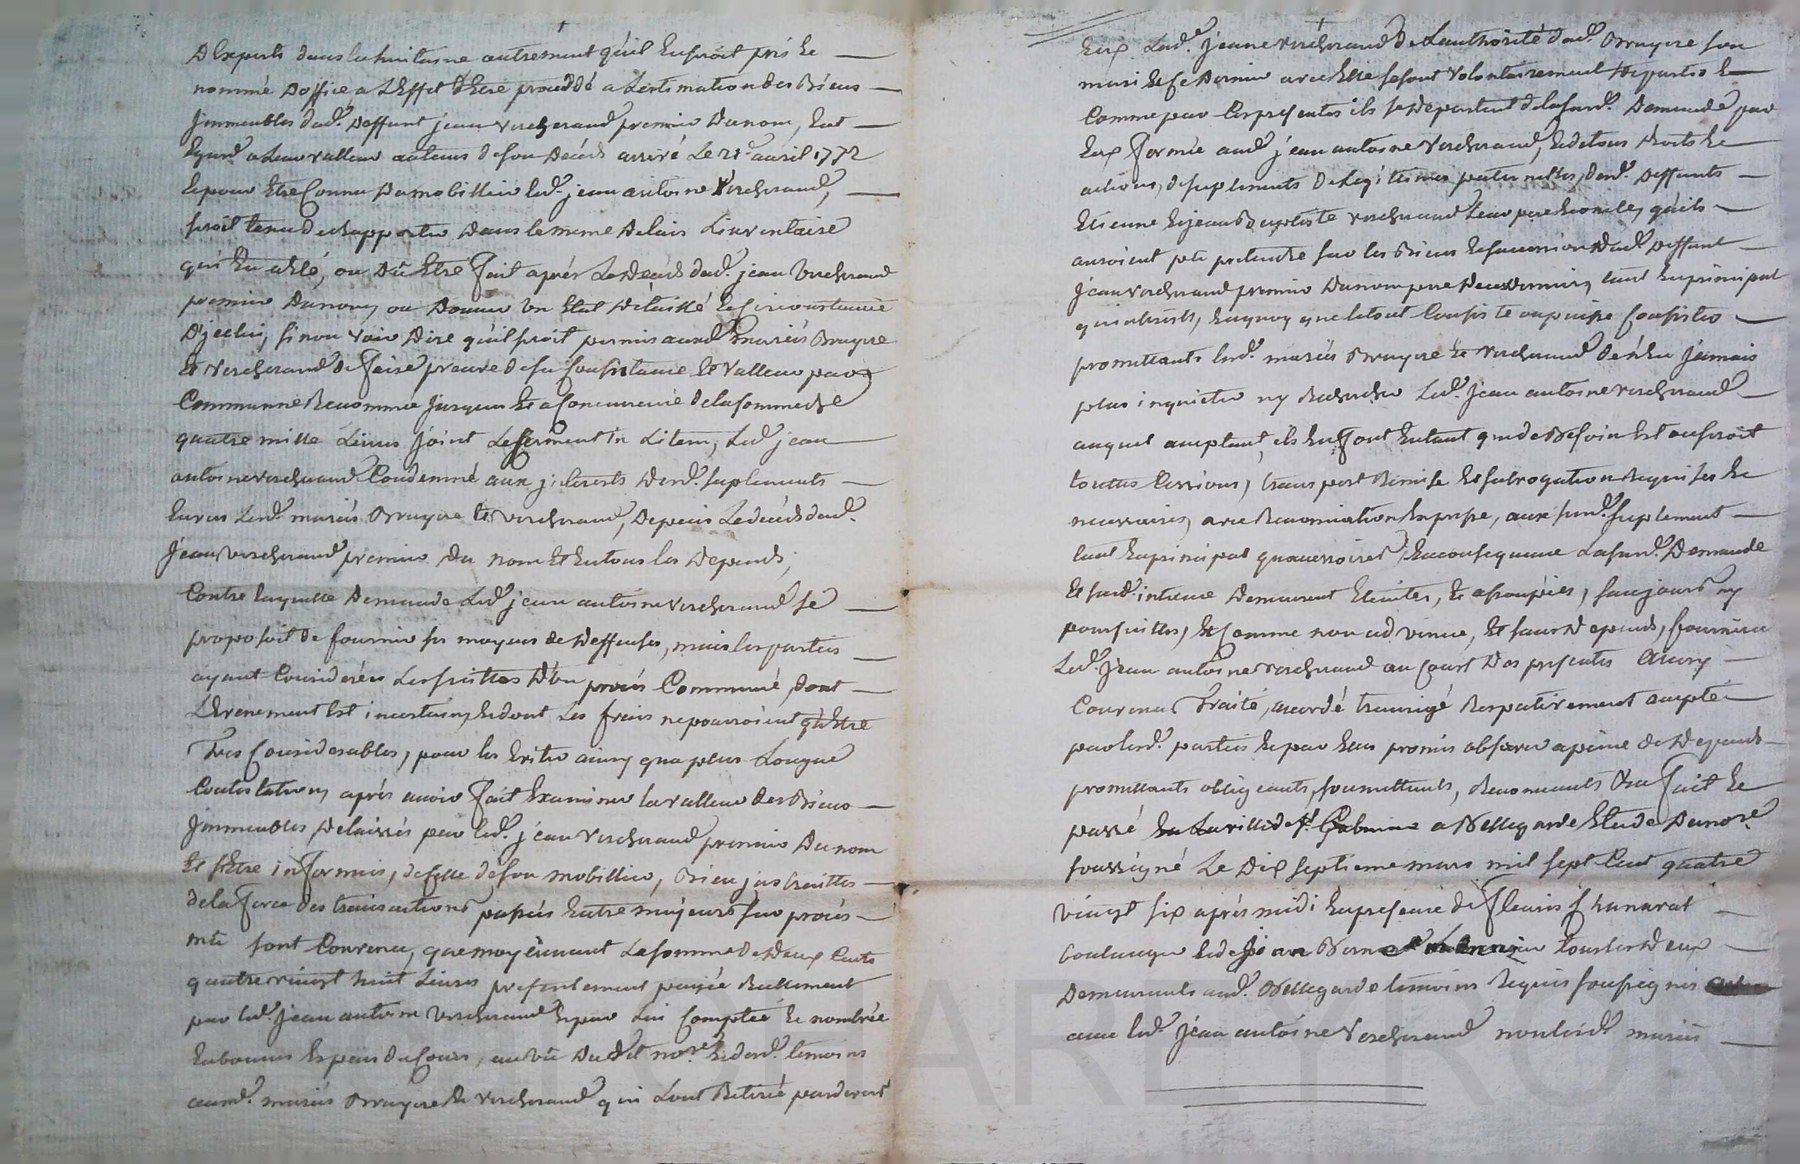 D'Experts dans la huitaine autrement qu'il En seroit pris Et
nommé D'office a L'Effet D'Etre procédé a L'Estimation des Biens
Jmmeubles dud.t Deffunt jean Vercherand premier Du nom, Eut
Egard a Leur valleur au tems de son Décéds arrivé Le 21.e avril 1772
Et pour Etre Connu Du mobillier led.t jean antoine Vercherand,
seroit tenu de Rapporter Dans le meme Delais L'inventaire
qui En a Eté, ou Dû Etre fait aprés Le Décéds dud.t jean Vercherand
premier Du nom, ou Donner un Etat Détaillé Et circonstancié
D'jcelui, sinon voir Dire qu'il seroit permis auxd.ts mariés Bruyere
Et Vercherand De faire preuve de sa Consistance Et Valleur par
Commune Renommée jusques Et a Concurrence de la somme de
quatre mille Livres joint Le serment in Litem, Led.t jean
antoine Vercherand Condemné aux jnterests Desd.ts suplements
Envers Lesd.ts mariés Bruyere Et Vercherand, Depuis Le décéds dud.t
Jean Vercherand premier Du nom Et En tous les Depends,
Contre laquelle Demande Led.t jean antoine Vercherand se
proposoit De fournir ses moyens de Deffenses, mais les parties
ayant Considerées Les suittes D'un procés Commencé, dont
L'Evenement Est incertain, Et dont Les frais ne pouvoient qu'Etre
Tres Considerables, pour les Eviter ainsy que plus Longue
Contestation, aprés avoir fait Examiner la valleur des Biens
Jmmeubles Délaissés par led.t jean Vercherand premier Du nom
Et s'Etre informés, de celle de son mobillier, Bien jnstruittes
de la force des transactions passées Entre majeurs sur procés
sont Convenu, que moyennant La somme De Deux Cents
quatre vingt huit Livres presentement payée Reellement
par led.t Jean antoine Vercherand Et par Lui Comptée Et nombrée
En bonnes Especes du Cours, au vû Dudit no.re Et desd.ts temoins
auxd.ts mariés Bruyere Et Vercherand qui L'ont Retirée par devers
Eux Lad.e jeanne Vercherand De L'authorité dud.t Bruyere son
mari Et ce Dernier avec Elle se sont Volontairement Departis Et
Comme par Ces presentes ils se départent de la surd.e Demande par
Eux formée aud.t jean antoine Vercherand, Et de tous droits Et
actions, de suplements De Legitimes paternelles, desd.ts Deffunts
Etienne Et jean Baptiste Vercherand Leur pere Et oncle, qu'ils
auroient pû pretendre sur les Biens Et succession Dud.t Deffunt
Jean Vercherand premier Du nom pere De ce Dernier, tant En principal
qu'interests, En quoy que le tout Consiste ou puisse Consister
promettants lesd.ts mariés Bruyere Et Vercherand De n'En jamais
plus inquieter ny Rechercher Led.t jean antoine Vercherand
auquel acceptant, ils En font En tant que de Besoin Est ou seroit
toutes Cessions, transport Remise Et subrogation Requises Et
necessaires, avec Renonciation Expresse, aux susd.ts suplement
tant En principal qu'accessoires, En consequence La surd.e Demande
Et surd.e instance Demeurent Eteintes, Et assoupies, sans jours ny
poursuittes, Et Comme non advenue, Et sans Depends, fournira
Led.t Jean antoine Vercherand au Cours Des presentes Ainsy
Convenu Traité, accordé transigé Respectivement accepté
par lesd.ts parties Et par Eux promis observer a peine de Depends
promettants obligeants, soumettants, Renonceants &a fait Et
passé a Bellegarde Etude Du no.re
soussigné Le Dix septieme mars mil sept Cent quatre
vingt six aprés midi En presence de Fleuris
Et de Jean tous les Deux
Demeurants aud.t Bellegarde temoins Requis soussignés
avec led.t Jean antoine Vercherand non lesd.ts mariés